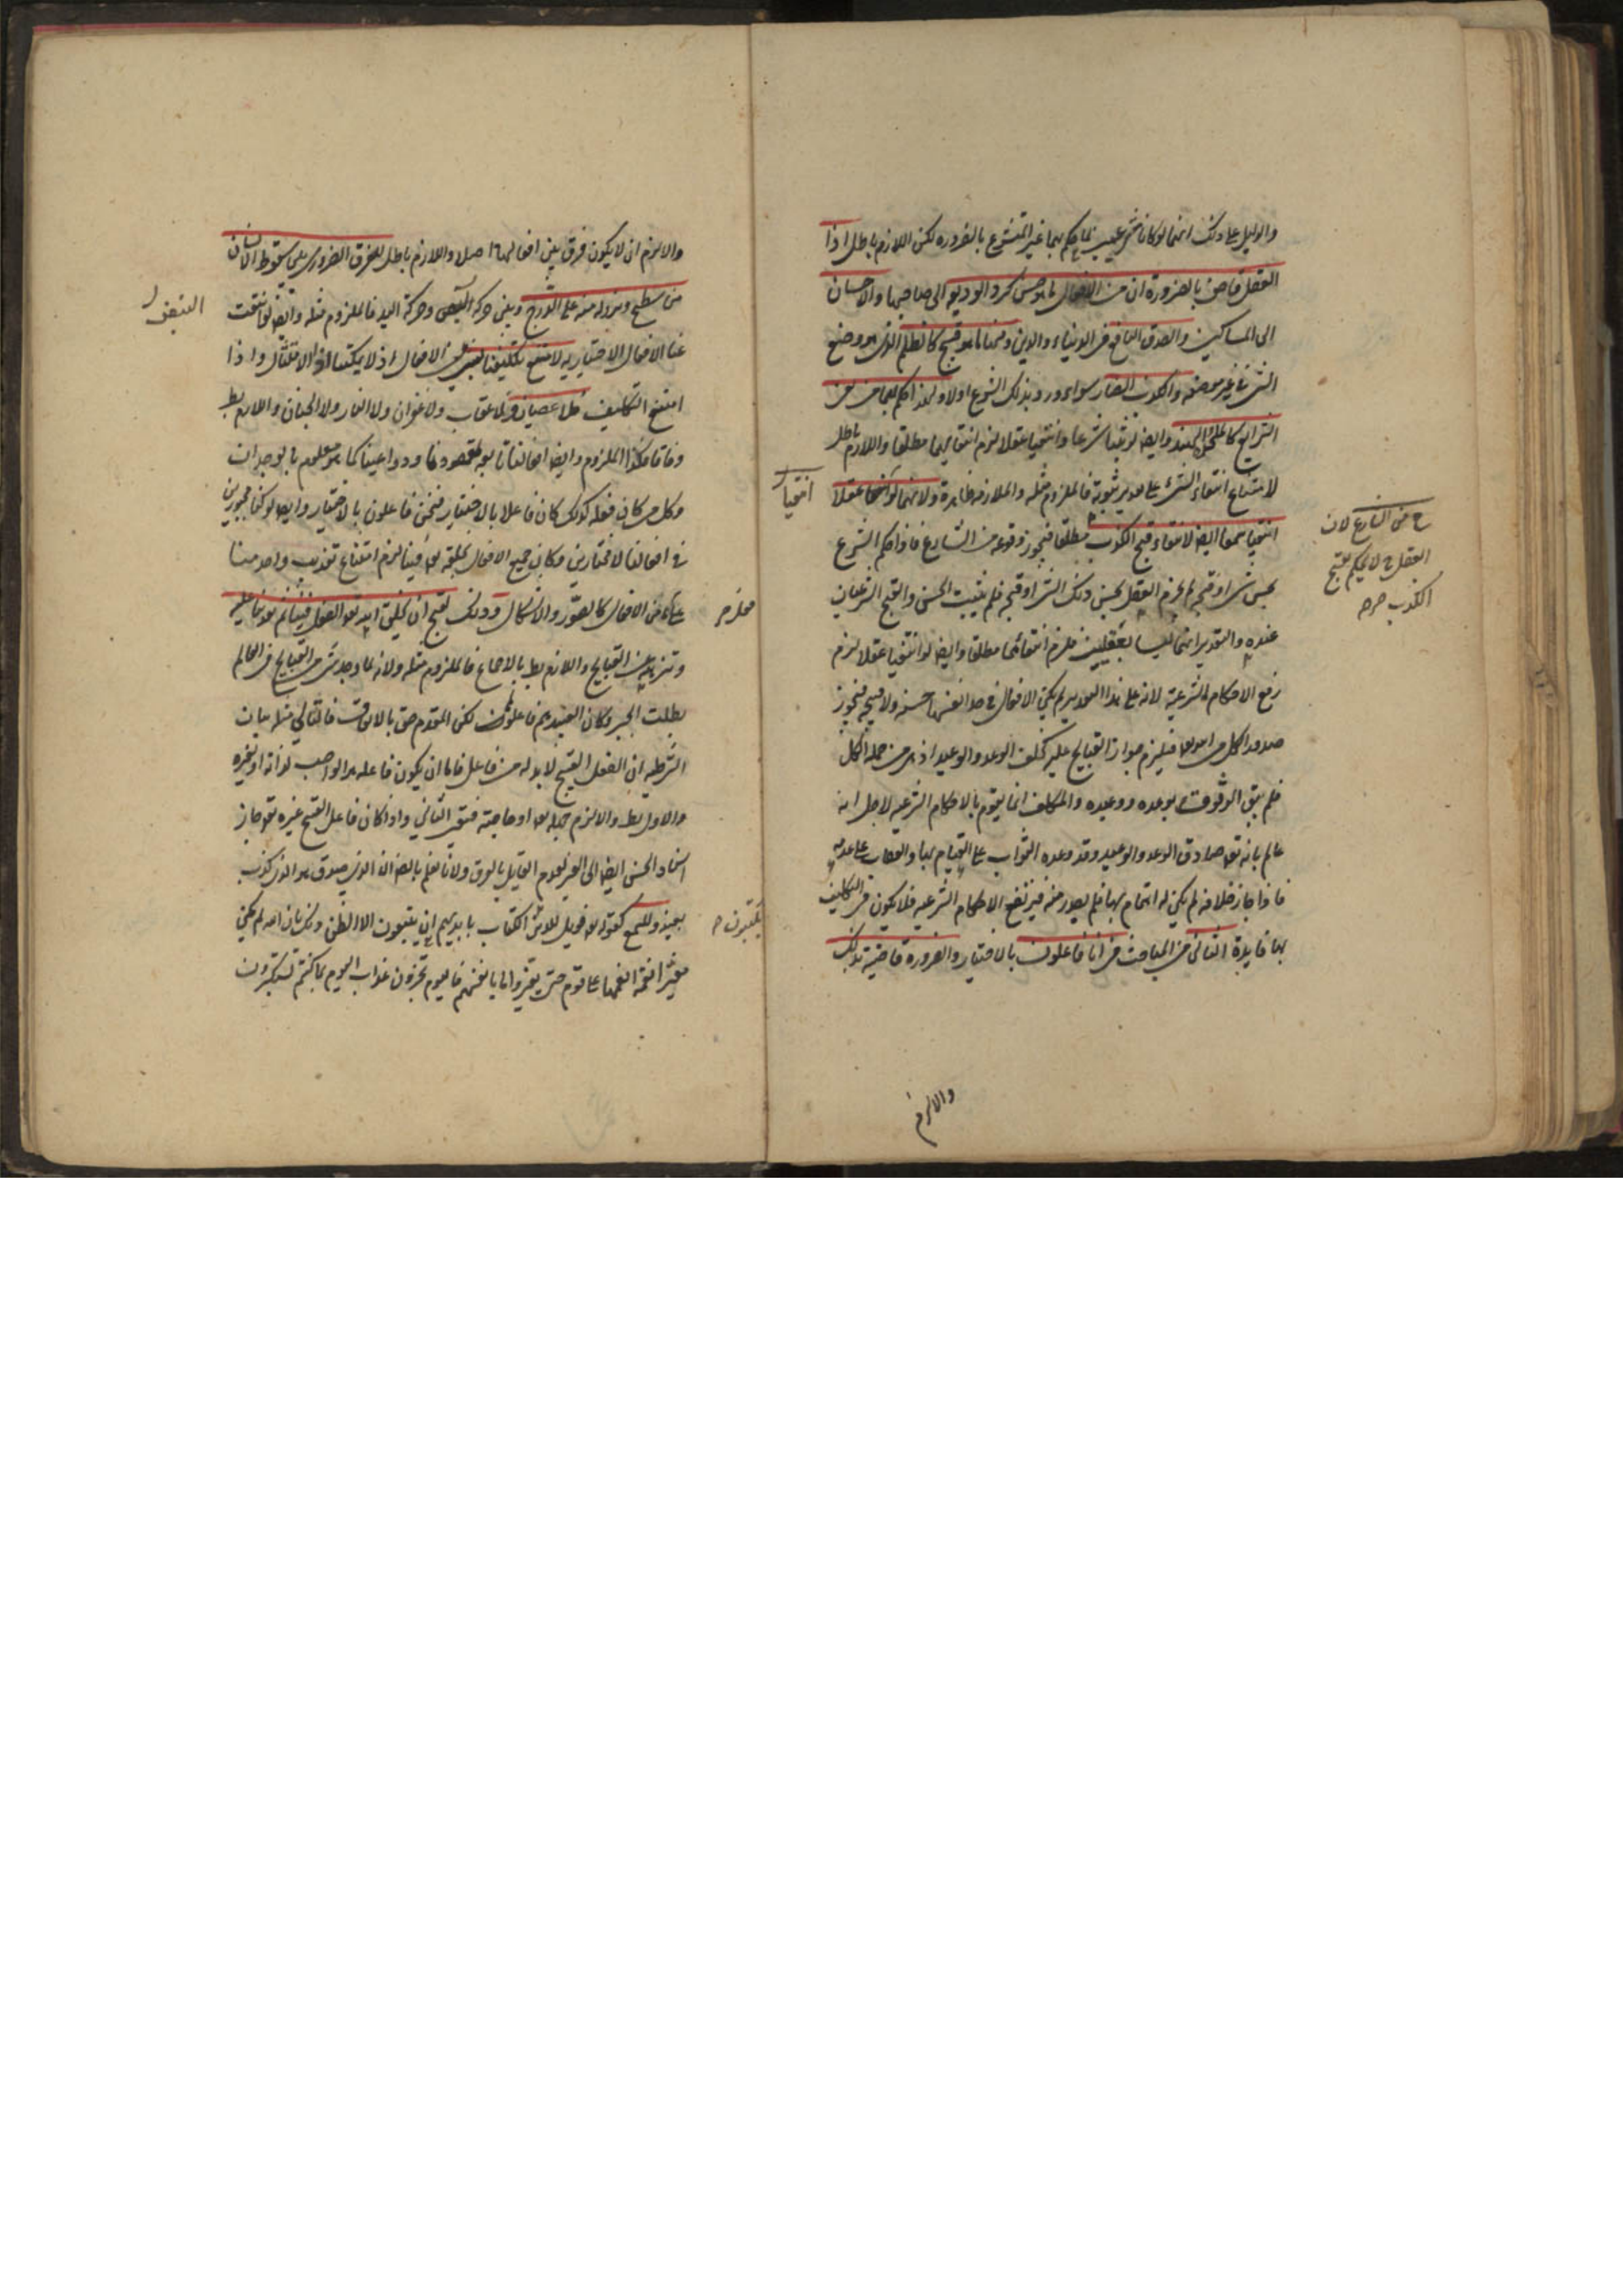 والدليل على ذلك انهما لو كانا شرعيين لما حكم بهما غير المتشرع بالضرورة لكن اللازم باطل اذا
العقل قاض بالضرورة ان من الافعال ما هو حسن كرد الوديعه الى صاحبها والاحسان
الى المساكين والصدق النافع فى الدنياء والدين ومنها ما هو قبيح كالظلم الذى هو وضع
الشئ فى غير موضعه والكذب الضار سواء ورد بذلك الشرع اولا ولهذا حكم بهما من نفى
الشرايع كالملاحدة والهند وايضا لو ثبتا شرعا وانتفيا عقلا لزم انتفايهما مطلقا واللازم باطل
لامتناع انتفاء الشئ على تقدير ثبوته فالملزوم مثله والملازمه ظاهرة ولانهما لو انتفيا عقلا
انتفيا سمعا ايضا لانتفاء قبح الكذب مطلقا فيجوز وقوعه من الشارع فاذا حكم الشرع
بحسن شئ او قبحه لم يجزم العقل بحسن ذلك الشئ او قبحه فلم يثبت الحسن والقبح الشرعيان
عنده والتقدير انهما ليسا بعقليين فلزم انتفائهما مطلقا وايضا لو انتفيا عقلا لزم
رفع الاحكام الشرعية لانه على هذا التقدير لم يكن الافعال فى حد انفسها حسنه ولا قبيحه فيجوز
صدور الكل من الله تعالى فيلزم جواز القبايح عليه كخلف الوعد والوعيد اذ هى من جملة الكل
فلم يبق الوثوق بوعده ووعيده والمكلف انما يقوم بالاحكام الشرعيه لاجل انه
عالم بانه تع صادق الوعد والوعيد وقد وعده الثواب على القيام بها والعقاب على عدمه
فاذا جاز خلافه لم يكن له اهتمام بها فلم يصدر منه فيرتفع الاحكام الشرعيه فلا يكون فى التكليف
بها فايدة الثانى من المباحث فى انا فاعلون بالاختيار والضرورة قاضية بذلك
انتفيا
ح من الشارع لان
العقل ح لا يحكم بقبح
الكذب صح
والا لزم
والا لزم ان لا يكون فرق بين افعالها اصلا واللازم باطل للفرق الضرورى بين سقوط الانسان
من سطح ونزوله منه على الدرج وبين حركة النبض وحركة اليد فالملزوم مثله وايضا لو انتفت
عنا الافعال الاختياريه لامتنع تكليفنا بشئ من الافعال اذ لا يمكننا الامتثال واذا
امتنع التكليف فلا عصيان ولا عقاب ولا غفران ولا النار ولا الجنان واللازم بط
وفاقا فكذا الملزوم وايضا افعالنا تابعه لقصودنا ودواعينا كما هو معلوم بالوجدان
وكل من كان فعله كذلك كان فاعلا بالاختيار فنحن فاعلون بالاختيار وايضا لو كنا مجبورين
فى افعالنا لا مختارين وكان جميع الافعال بخلقه تع فينا لزم امتناع تعذيب واحد منا
على شئ من الافعال كالصور والاشكال وذلك لقبح ان يخلق الله تع الفعل فينا ثم يعذبنا عليه
وتنزيهه عن القبايح واللازم بط بالاجماع فالملزوم مثله ولانه لما وجد شئ من القبايح فى العالم
بطلت الجبر وكان العبيد هم فاعلون لكن المقدم حق بالاتفاق فالتالى مثله بيان
الشرطيه ان الفعل القبيح لا بد له من فاعل فاما ان يكون فاعله هو الواجب لذاته او غيره
والاول بط والا لزم جهله تع او حاجته فبقى الثانى واذا كان فاعل القبح غيره تع جاز
اسناد الحسن ايضا الى الغير لعدم القايل بالفرق ولانا نعلم بالضرورة ان الذى صدق هو الذى كذب
بعينه وللسمع كقوله تع فويل للذين الكتاب بايديهم ان يتبعون الا الظن ذلك بان الله لم يكن
مغيرا نعمة انعمها على قوم حتى يغيروا ما بانفسهم فاليوم تجزون عذاب اليوم بما كنتم تستكبرون
النبض
يكتبون ح